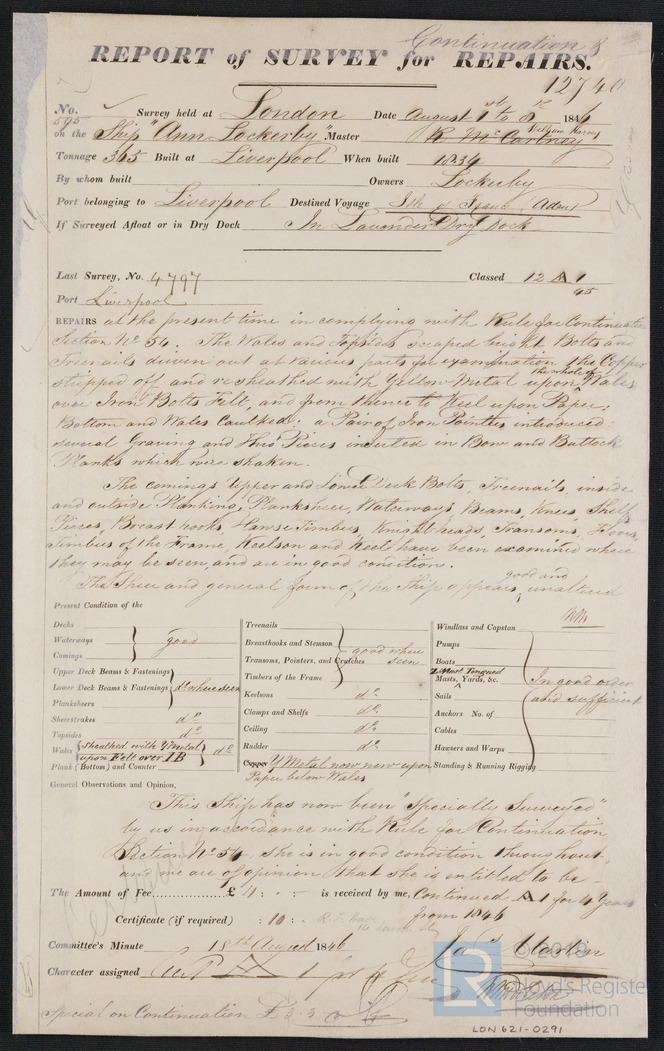 Continuation
REPORT of SURVEY for REPAIRS.
12740
No. 595 Survey held at London Date August 1st to 8th 1846
on the Ship "Ann Lockerby" Master R McCartney William
Tonnage 365 Built at Liverpool When built 1834
By whom built Owners Lockerby
Port belonging to Liverpool Destined Voyage Isle of France Aden
If Surveyed Afloat or in Dry Dock In Lavender Dry Dock
Last Survey, No. 4797 Classed 12 A 1
45
Port Liverpool
REPAIRS at the present time in complying with Rule for Continuation
Section No 54. The Wales and Topsides scraped bright Bolts and
Treenails driven out at various parts for examination the Copper
stripped off and resheathed with Yellow Metal upon the whole of Wales
over Iron Bolts Felt, and from thence to Keel upon Paper:
Bottom and Wales Caulked: a Pair of Iron Pointers introduced
several Graving and Pieces inserted in Bow and Buttock
Planks which were shaken.
The comings Upper and Lower Deck Bolts, Treenails, inside
and outside Planking, Planksheer, Waterways, Beams, Knees Shelf
Pieces, Breasthooks, Hawse Timbers, Knightheads, Transoms, Floors,
Timbers of the Frame, Keelson and Keel have been examined where
they may be seen, and are in good condition.
The Sheer and general form of the Ship appears good and unaltered
Present Condition of the
Decks
Waterways good
Comings
Upper Deck Beams & Fastenings
Lower Deck Beams & Fastenings do where seen
Planksheers
Sheerstrakes do
Topsides do
Wales sheathed with Y Metal upon Felt over IB do
Plank (Bottom) and Counter
Treenails
Breasthooks and Stemson good where seen
Transoms, Pointers, and Crutches
Timbers of the Frame
Keelsons do
Clamps and Shelfs do
Ceiling do
Rudder do
Copper Y Metal now new upon
Paper below Wales
Windlass and Capstan
Pumps
Boats
Masts, Yards, &c. In good order
Sails and sufficient
Anchors No. of
Cables
Hawsers and Warps
Standing & Running Rigging
General Observations and Opinion,
This Ship has now been "Specially Surveyed"
by us in accordance with Rule for Continuation
Section No 54, she is in good condition throughout,
and we are of opinion that she is entitled to be
The Amount of Fee £ 4 : - : - is received by me, Continued A 1 for 4 Years
from 1846
Certificate (if required) : 10 : -
Committee's Minute 18th August 1846
Jas Martin
Character assigned A 1 for 4
Special on Continuation £ 3 3 0
© 2019
LR Lloyd's Register
Foundation
LON 621-0291